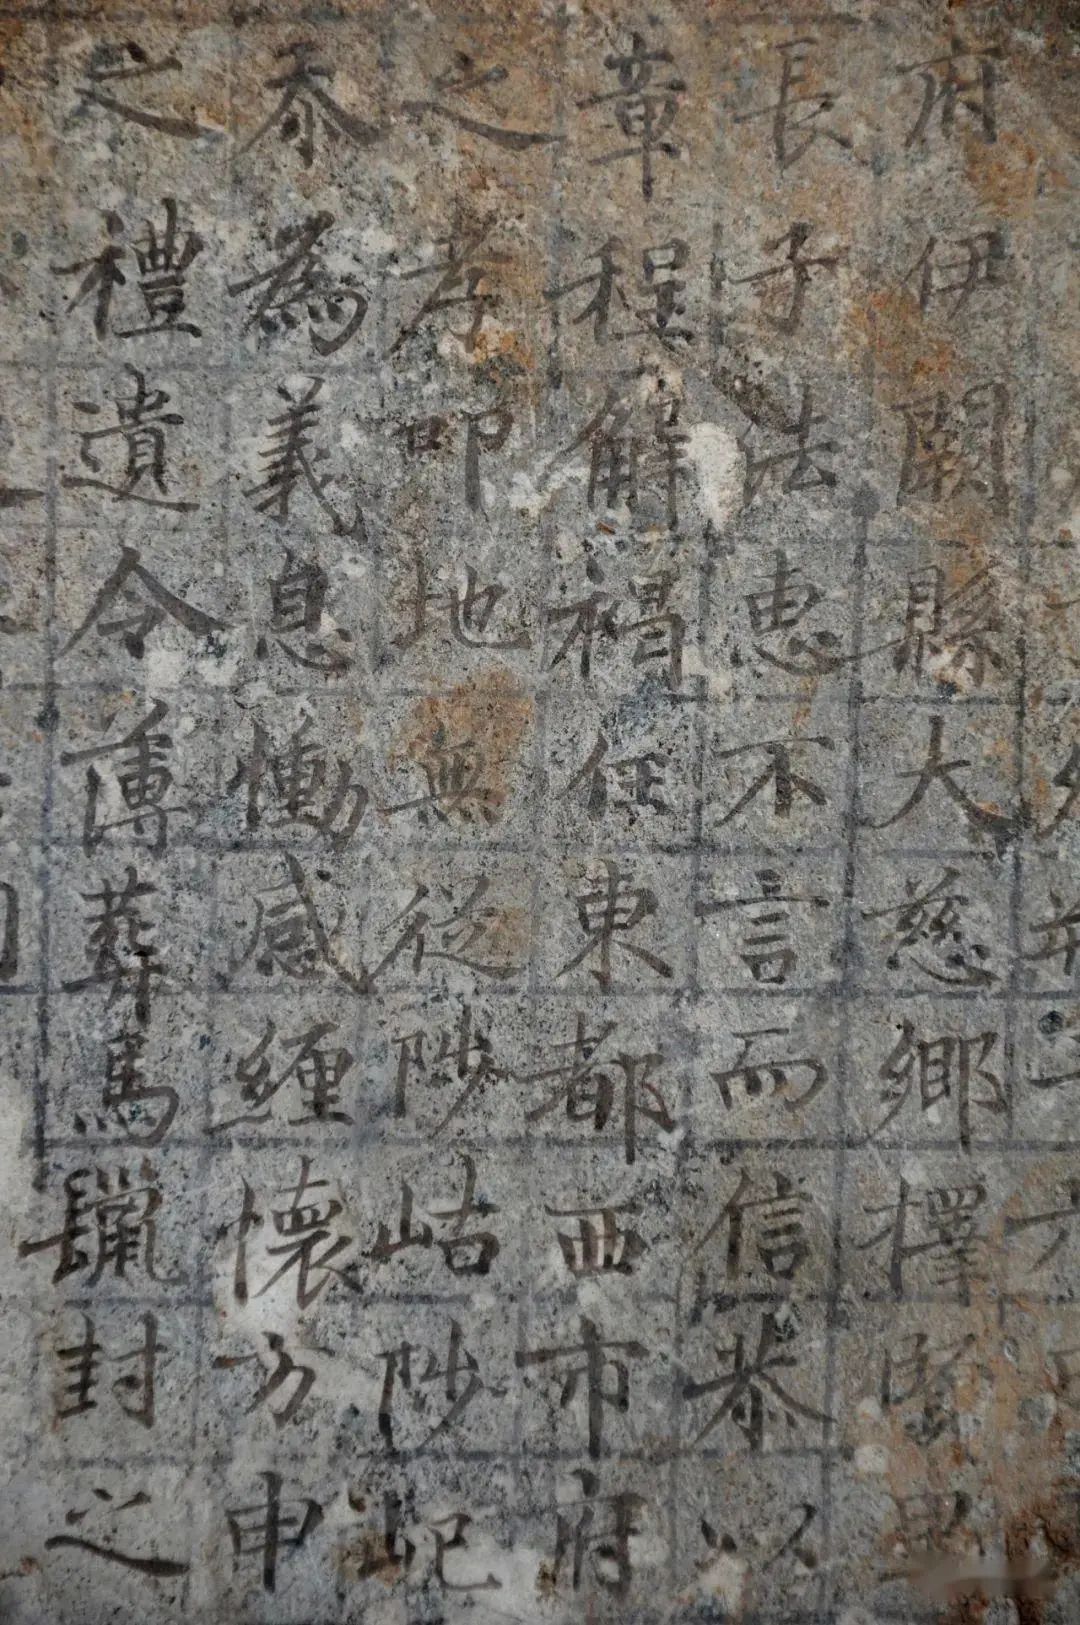 府伊闕縣大慈鄉擇賢里
長子法惠不言而信恭以
章程解褐任東都西市府
之孝叩地無從陟岵陟屺
忝為義息慟感纏懷方申
之禮遺令薄葬馬鬣封之